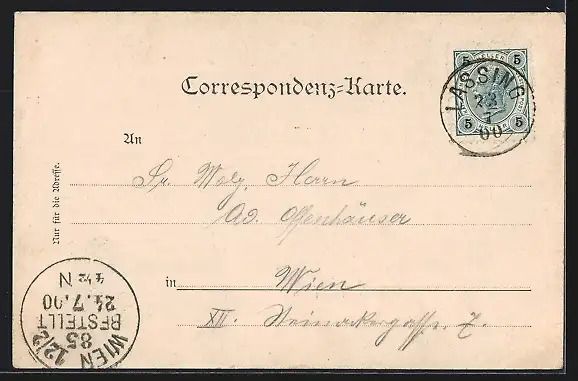 Correspondenz-Karte.
5 HELLER 5
5 HELLER 5
LASSING
23
7
00
An
Sr. Wolg. Herrn
Ad. Offenhäuser
in Wien
XII. Steinackergasse 7.
Nur für die Adresse.
WIEN 12/2
85
BESTELLT
24.7.00
4½ N